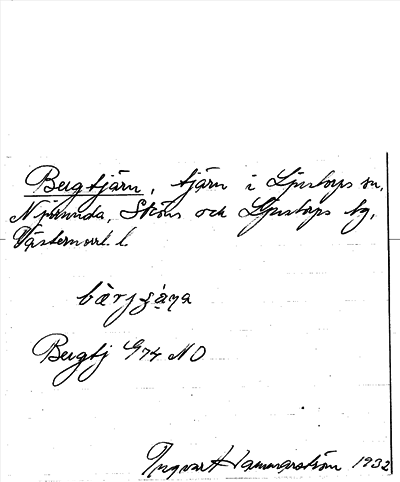 Bergtjärn, tjärn i Ljustorps sn,
Njurunda, Sköns och Ljustorps tg,
Västernorrl. l.
bàrjʂä̀ɳa
Bergtj G74 NO
Ingvar Hammarström 1932